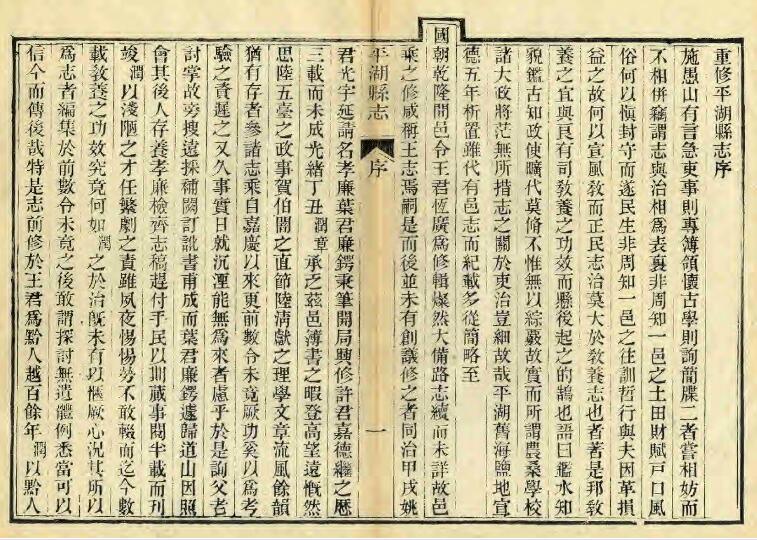 重修平湖縣志序
施愚山有言急吏事則專簿領懷古學則詢簡牒二者嘗相妨而
不相併竊謂志與治相為表裏非周知一邑之土田財賦戶口風
俗何以慎封守而遂民生非周知一邑之往訓哲行與夫因革損
益之故何以宣風教而正民志治莫大於教養志也者著是邦教
養之宜與良有司教養之功效而懸後起之的鵠也語曰鑑水知
貌鑑古知政使曠代莫脩不惟無以綜覈故實而所謂農桑學校
諸大政將茫無所措志之關於吏治豈細故哉平湖舊海鹽地宣
德五年析置雖代有邑志而紀載多從簡略至
國朝乾隆間邑令王君恆廣為修輯燦然大備路志續而未詳故邑
乘之修咸稱王志焉嗣是而後並未有創議修之者同治甲戌姚
平湖縣志 序 一
君光宇延請名孝廉葉君廉鍔秉筆開局興修許君嘉德繼之歷
三載而未成光緒丁丑潤章承乏茲邑簿書之暇登高望遠慨然
思陸五臺之政事賀伯闇之直節陸清獻之理學文章流風餘韻
猶有存者參諸志乘自嘉慶以來更前數令未竟厥功奚以為考
驗之資遲之又久事實日就沉湮能無為來者慮乎於是詢父老
討掌故旁搜遠採補闕訂訛書甫成而葉君廉鍔遽歸道山因照
會其後人存養孝廉檢齊志稿趕付手民以期蕆事閱半載而刊
竣潤以淺陋之才任繁劇之責雖夙夜惕惕勞不敢輟而迄今數
載教養之功效究竟何如潤之於治既未有以愜厥心況其所以
為志者編集於前數令未竟之後敢謂探討無遺體例悉當可以
信今而傳後哉特是志前修於王君為黔人越百餘年潤以黔人